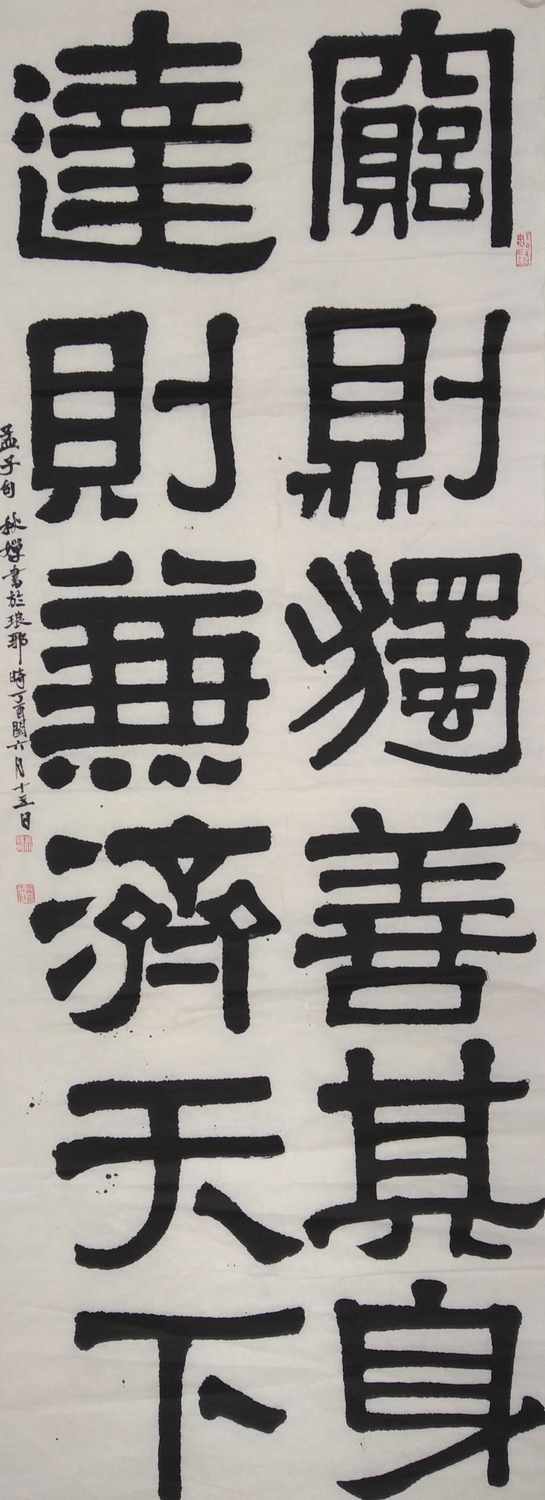 窮則獨善其身
達則兼濟天下
孟子句 秋嬋書於琅耶 時丁酉閏六月十五日